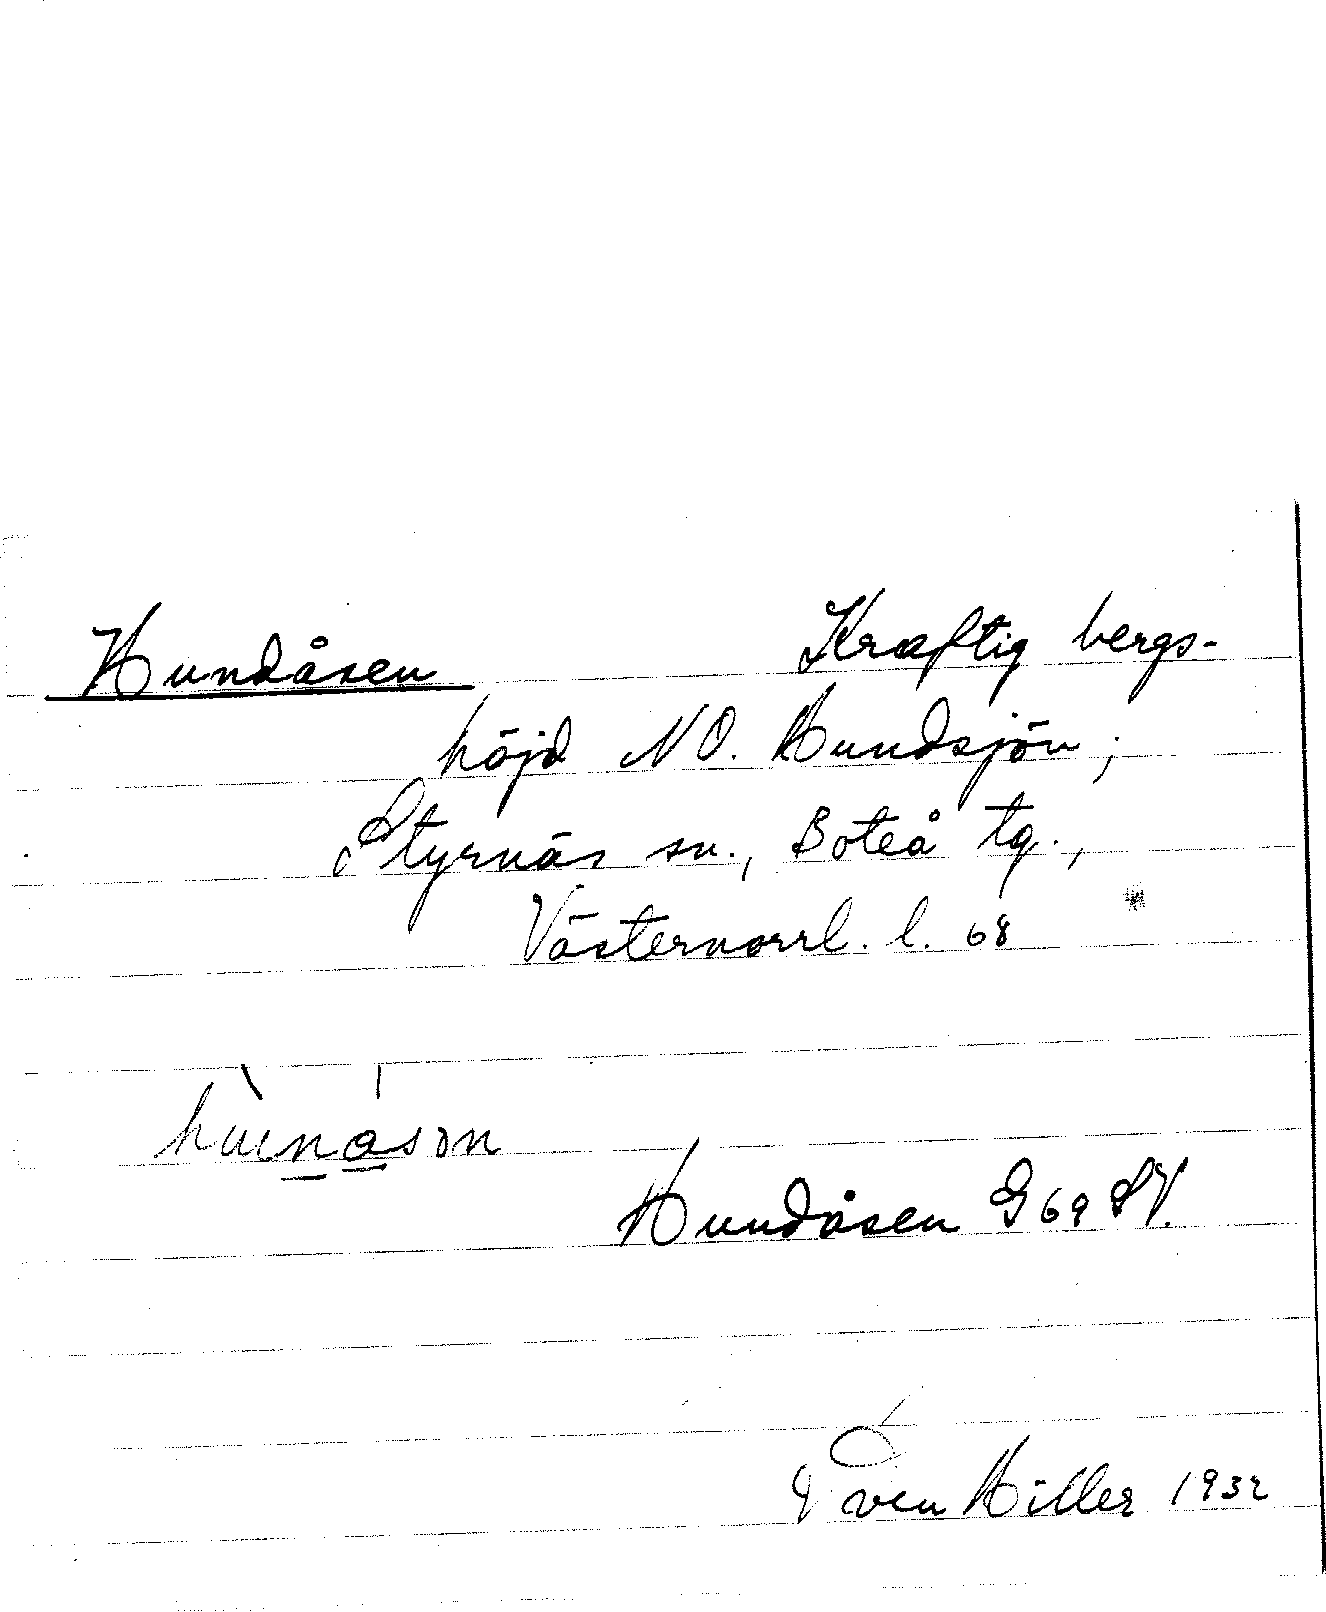 Hundåsen Kraftig bergs-
höjd NO. Hundsjön;
Styrnäs sn., Boteå tg.,
Västernorrl. l. 68
Hundåsen G 69 SV.
Sven Hiller 1932